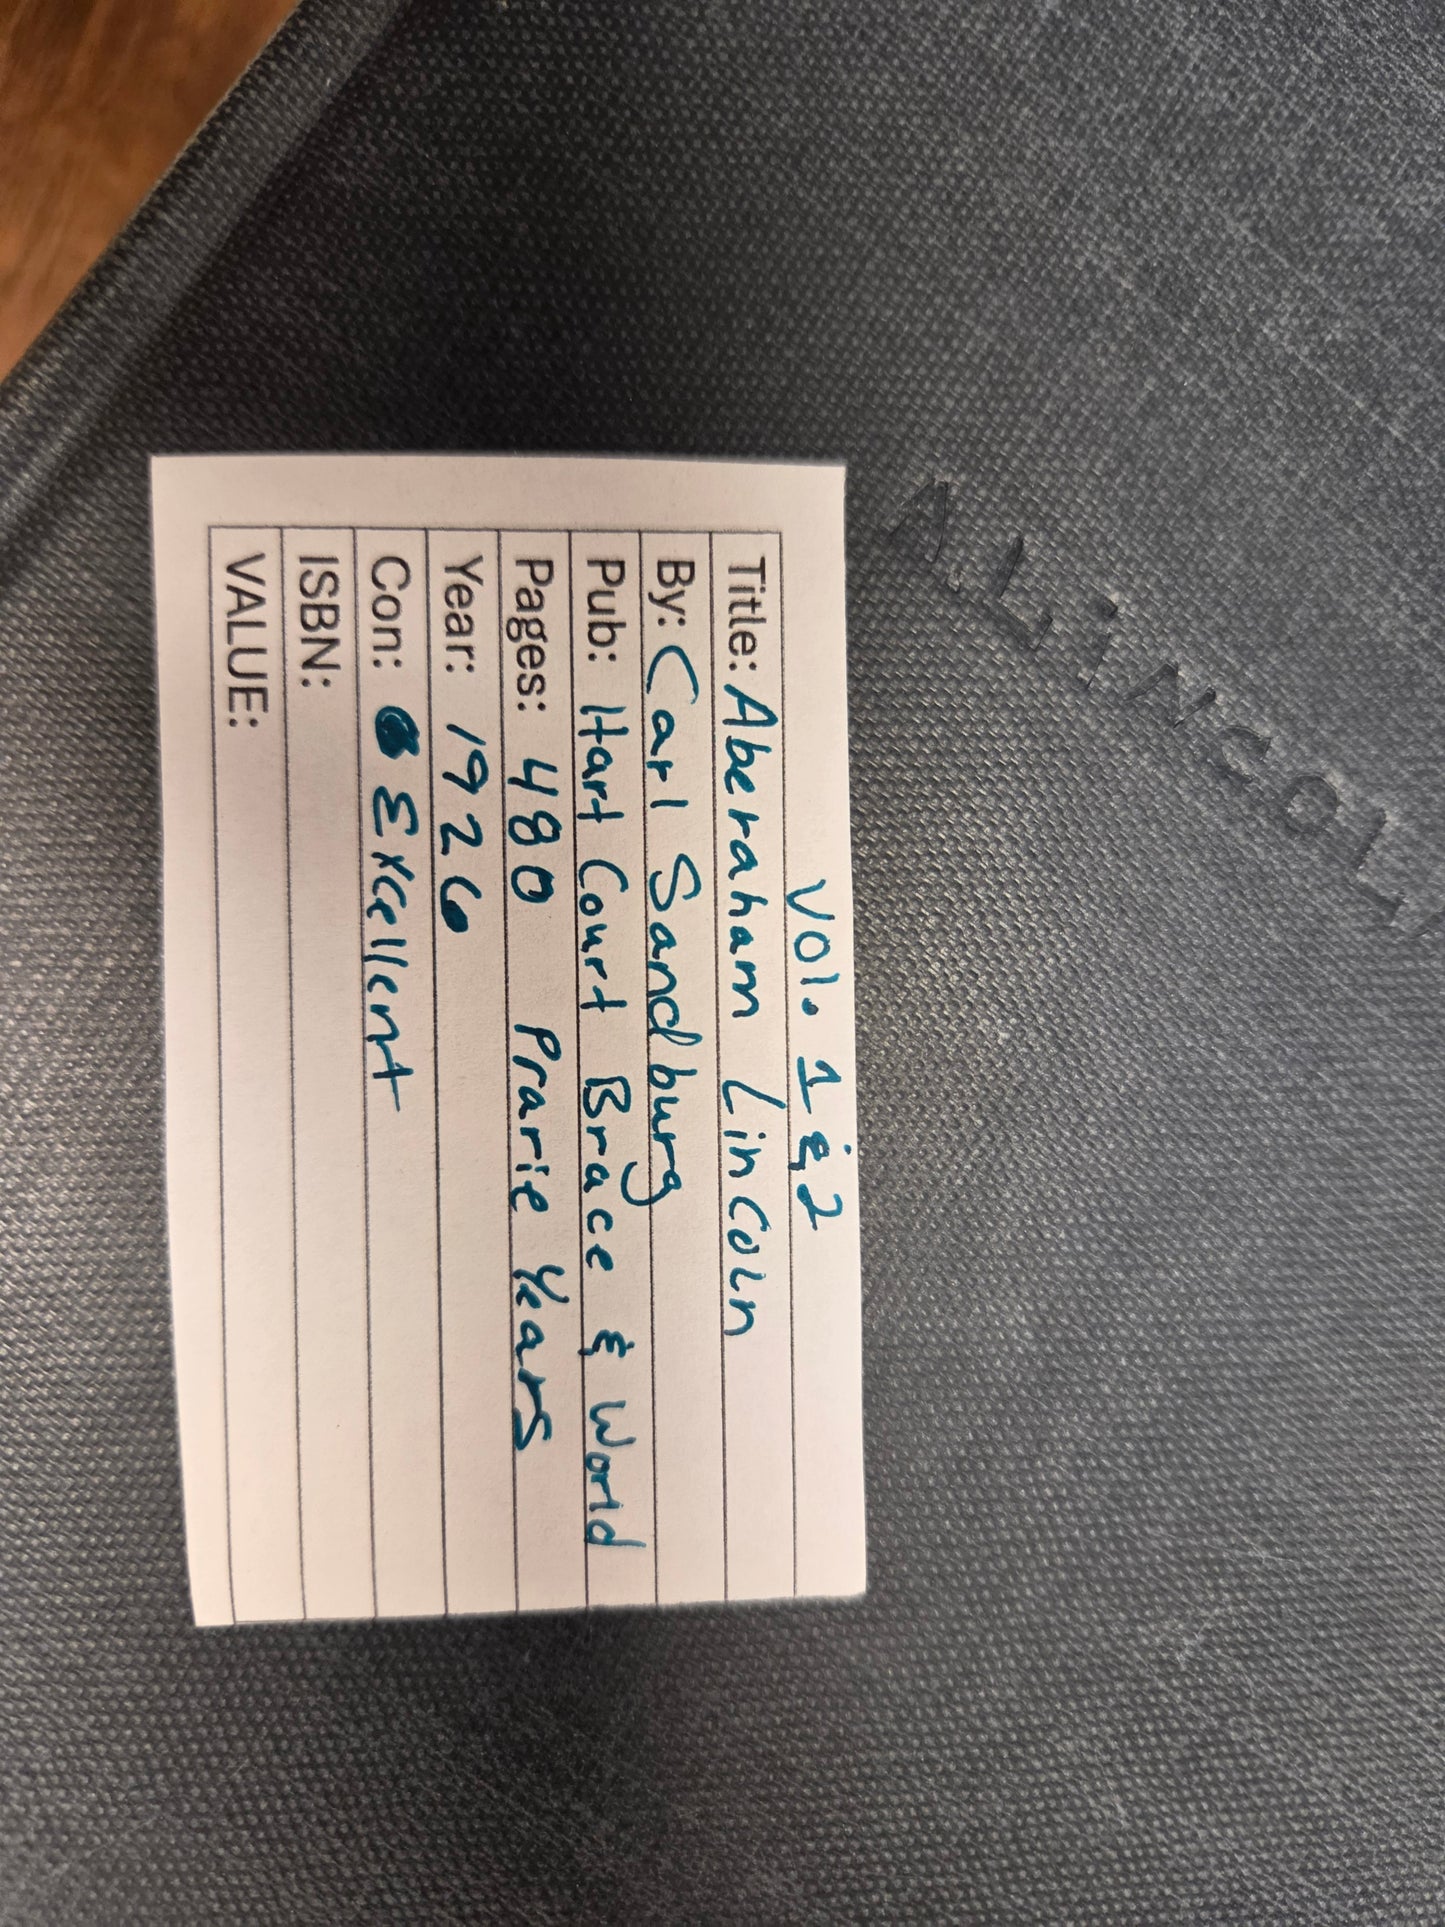 A. LiNCOLN
Vol. 1 & 2
Title: Aberaham Lincoln
By: Carl Sandburg
Pub: Hart Court Brace & World
Pages: 480 Prarie Years
Year: 1926
Con: Excellent
ISBN:
VALUE: